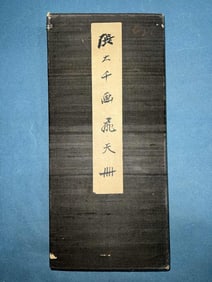 張大千画飛天冊